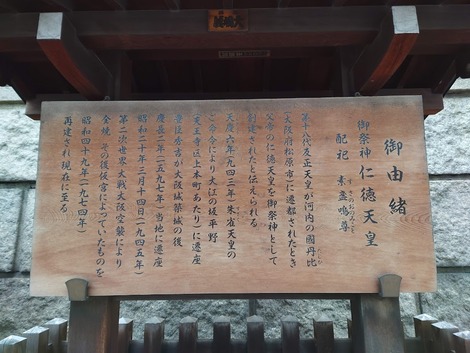 御由緒
御祭神 仁徳天皇
配祀 素盞嗚尊
すさのおのみこと
第十八代反正天皇が河内の國丹比
(大阪府松原市)に遷都されたとき
父帝の仁徳天皇を御祭神として
創建されたと伝えられる
天慶六年(九四三年)朱雀天皇の
ご命令により大江の坂平野
(天王寺区上本町あたり)に遷座
豊臣秀吉が大阪城築城の後
慶長二年(一五九七年)当地に遷座
昭和二十年三月十四日(一九四五年)
第二次世界大戦大阪空襲により
全焼 その後仮宮になっていたものを
昭和四十九年(一九七四年)
再建され現在に至る